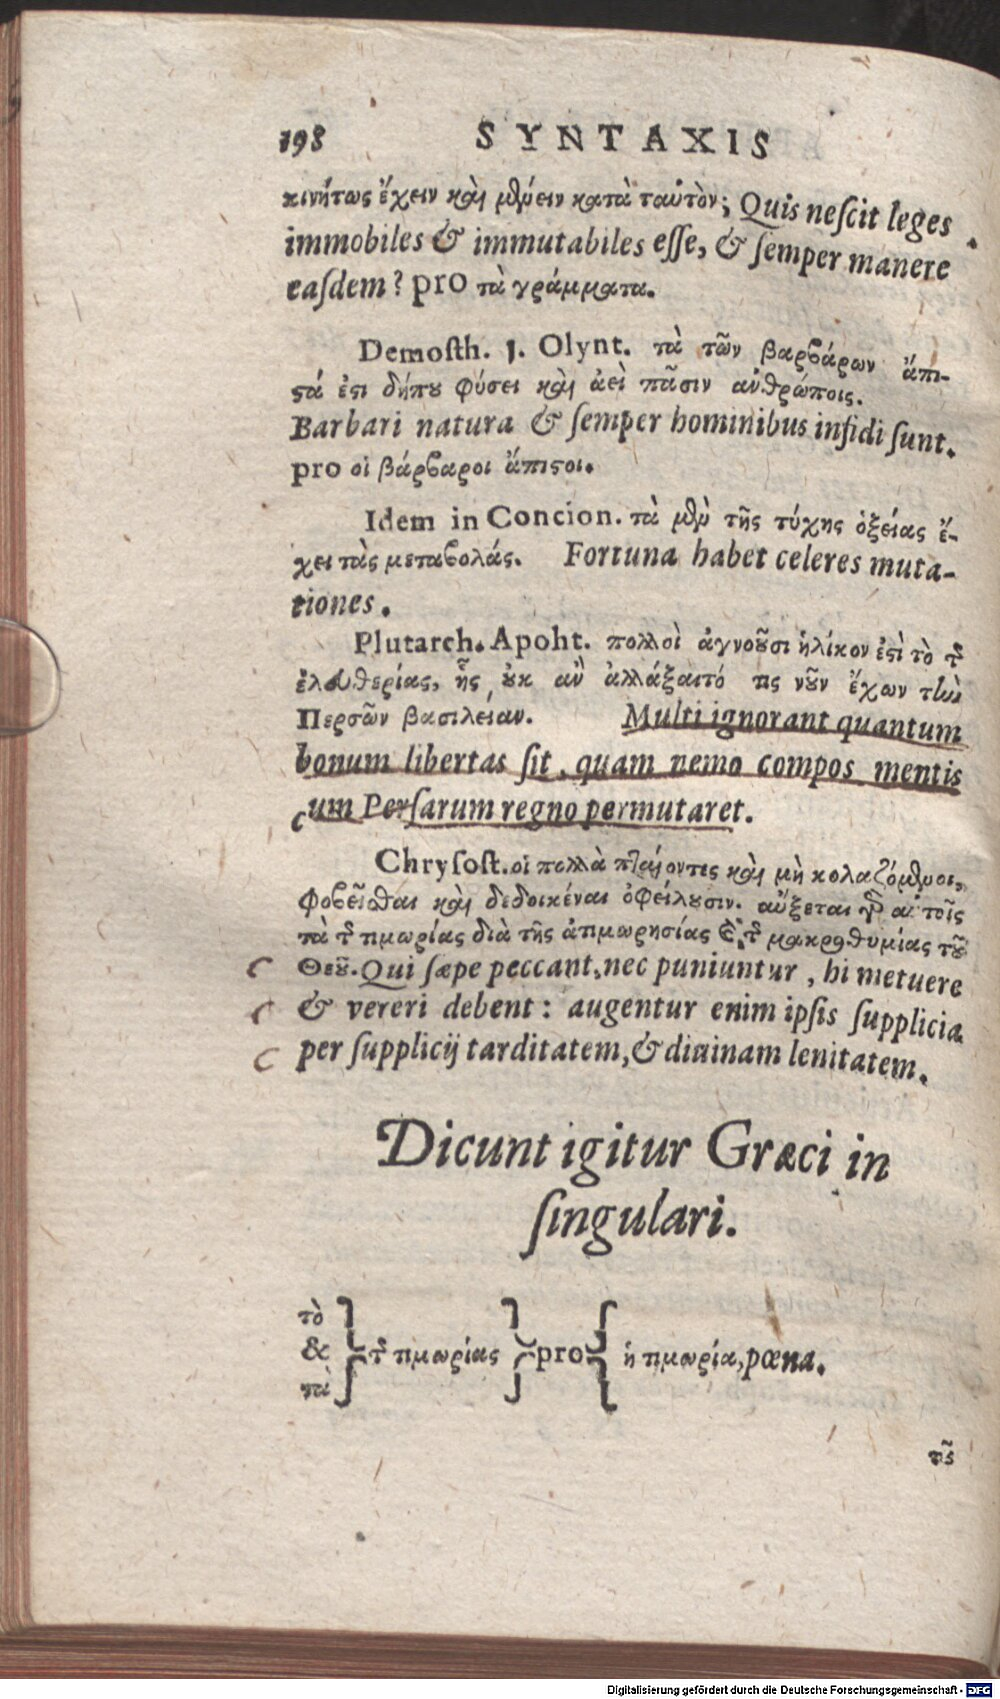 198 SYNTAXIS
κινήτως ἔχειν καὶ μένειν κατὰ ταὐτὸν; Quis neſcit leges
immobiles & immutabiles eſſe, & ſemper manere
eaſdem? pro τὰ γράμματα.
Demoſth. 1. Olynt. τὰ τῶν βαρβάρων ἄπι-
ϛά ἐϛι δήπου φύσει καὶ ἀεὶ πᾶσιν ἀνθρώποις.
Barbari natura & ſemper hominibus infidi ſunt.
pro οἱ βάρβαροι ἄπιϛοι.
Idem in Concion. τὰ μὲν τῆς τύχης ὀξείας ἔ-
χει τὰς μεταβολάς. Fortuna habet celeres muta-
tiones.
Plutarch. Apoht. πολλοὶ ἀγνοῦσι ἡλίκον ἐϛὶ τὸ τῆς
ἐλευθερίας, ἧς οὐκ ἂν ἀλλάξαιτό τις νοῦν ἔχων τὴν
Περσῶν βασιλείαν. Multi ignorant quantum
bonum libertas ſit, quam nemo compos mentis
cum Perſarum regno permutaret.
Chryſoſt. οἱ πολλὰ πταίοντες καὶ μὴ κολαζόμενοι,
φοβεῖσθαι καὶ δεδοικέναι ὀφείλουσιν. αὔξεται γὰρ αὐτοῖς
τὰ τῆς τιμωρίας διὰ τῆς ἀτιμωρησίας καὶ τῆς μακροθυμίας τοῦ
Θεοῦ. Qui ſæpe peccant, nec puniuntur, hi metuere
& vereri debent: augentur enim ipſis ſupplicia
per ſupplicij tarditatem, & diuinam lenitatem.
Dicunt igitur Græci in
ſingulari.
τὸ
& τῆς τιμωρίας pro ἡ τιμωρία, pœna.
τὰ
τῆς
Digitalisierung gefördert durch die Deutsche Forschungsgemeinschaft - DFG